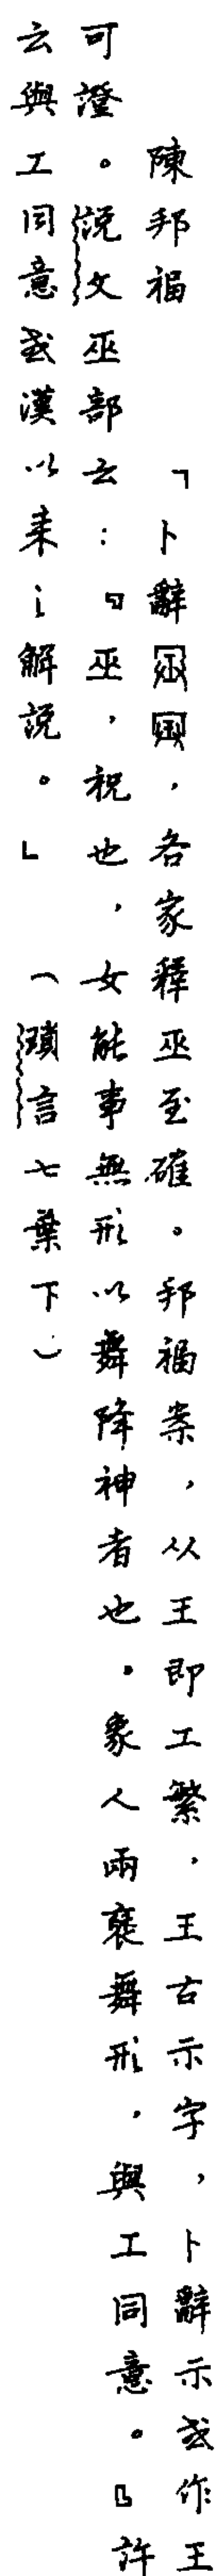 陳邦福　「卜辭，各家釋巫至確。邦福案，从王即工繁，王古示字，卜辭示或作王
可證。說文巫部云：『巫，祝也，女能事無形以舞降神者也。象人兩褎舞形，與工同意。』許
云與工同意或漢以来之解說。」（瑣言七葉下）